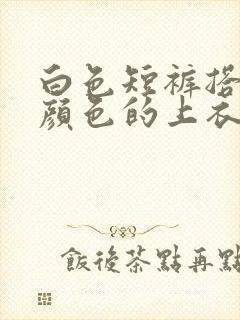 白色短裤搭
颜色的上衣
飯後茶點再點